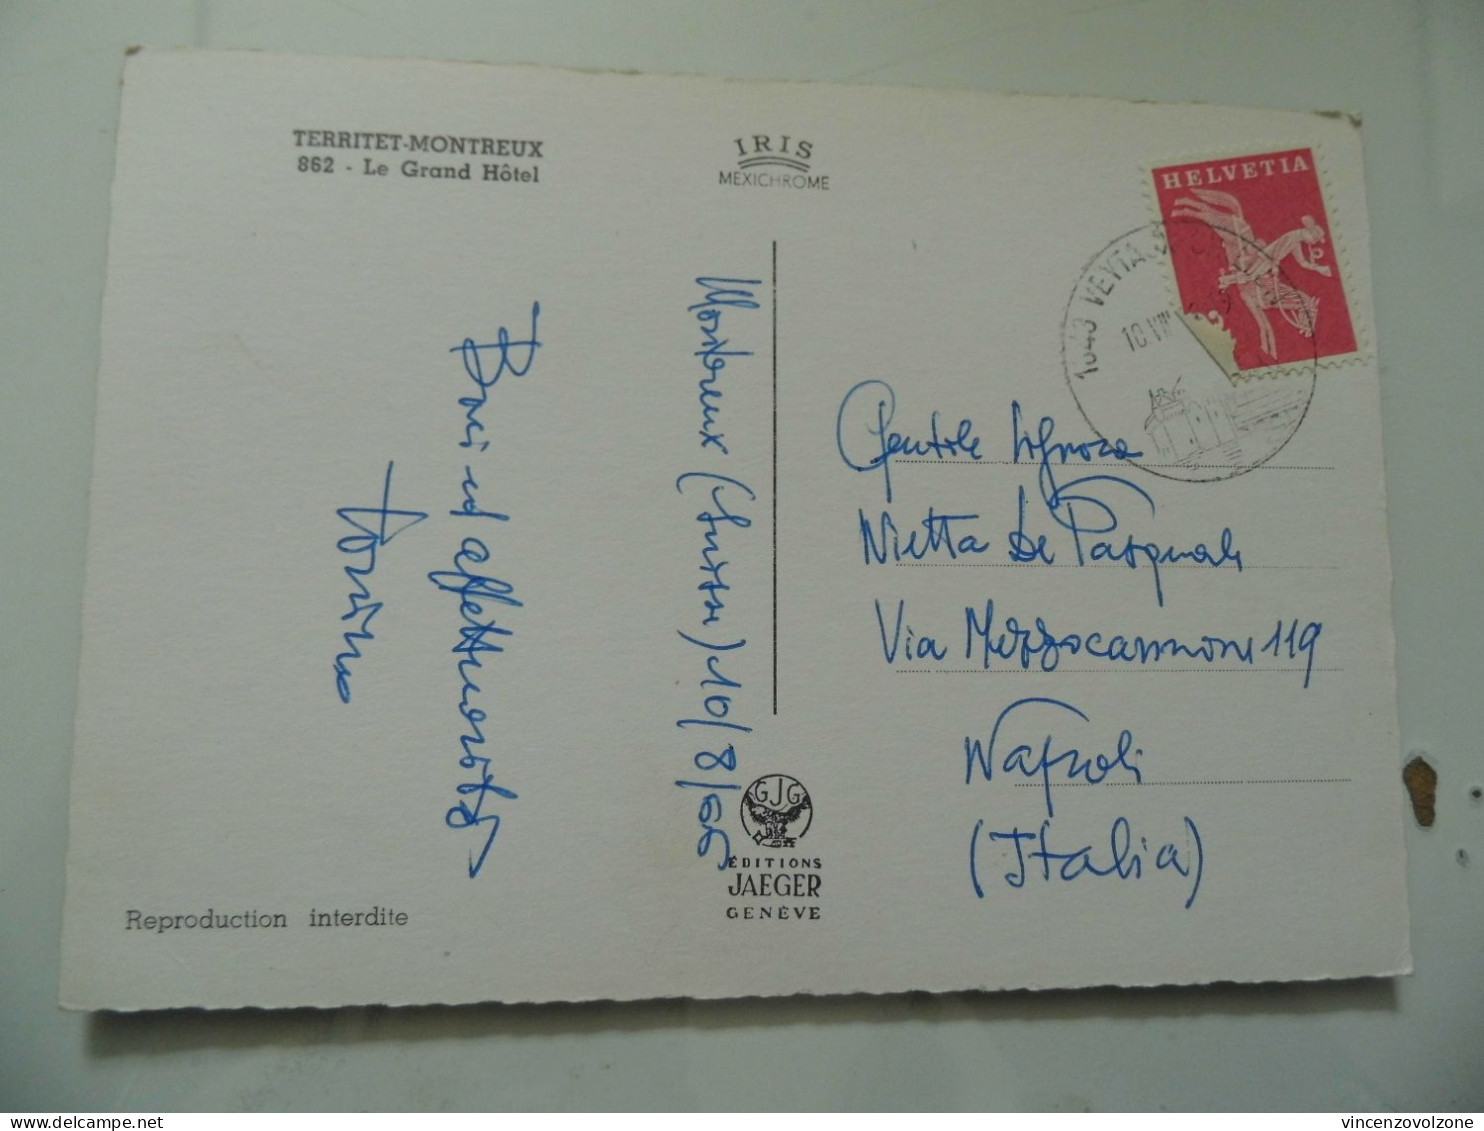 TERRITET-MONTREUX
862 - Le Grand Hôtel
IRIS
MEXICHROME
HELVETIA
1843 VEYTA
10 VIII
Montreux (Svizzera) 10/8/66
Baci ed affettuosità
Tonino
Gentile Signora
Nietta De Pasquale
Via Mezzocannone 119
Napoli
(Italia)
GJG
ÉDITIONS
JAEGER
GENÈVE
Reproduction interdite
vincenzovolzone